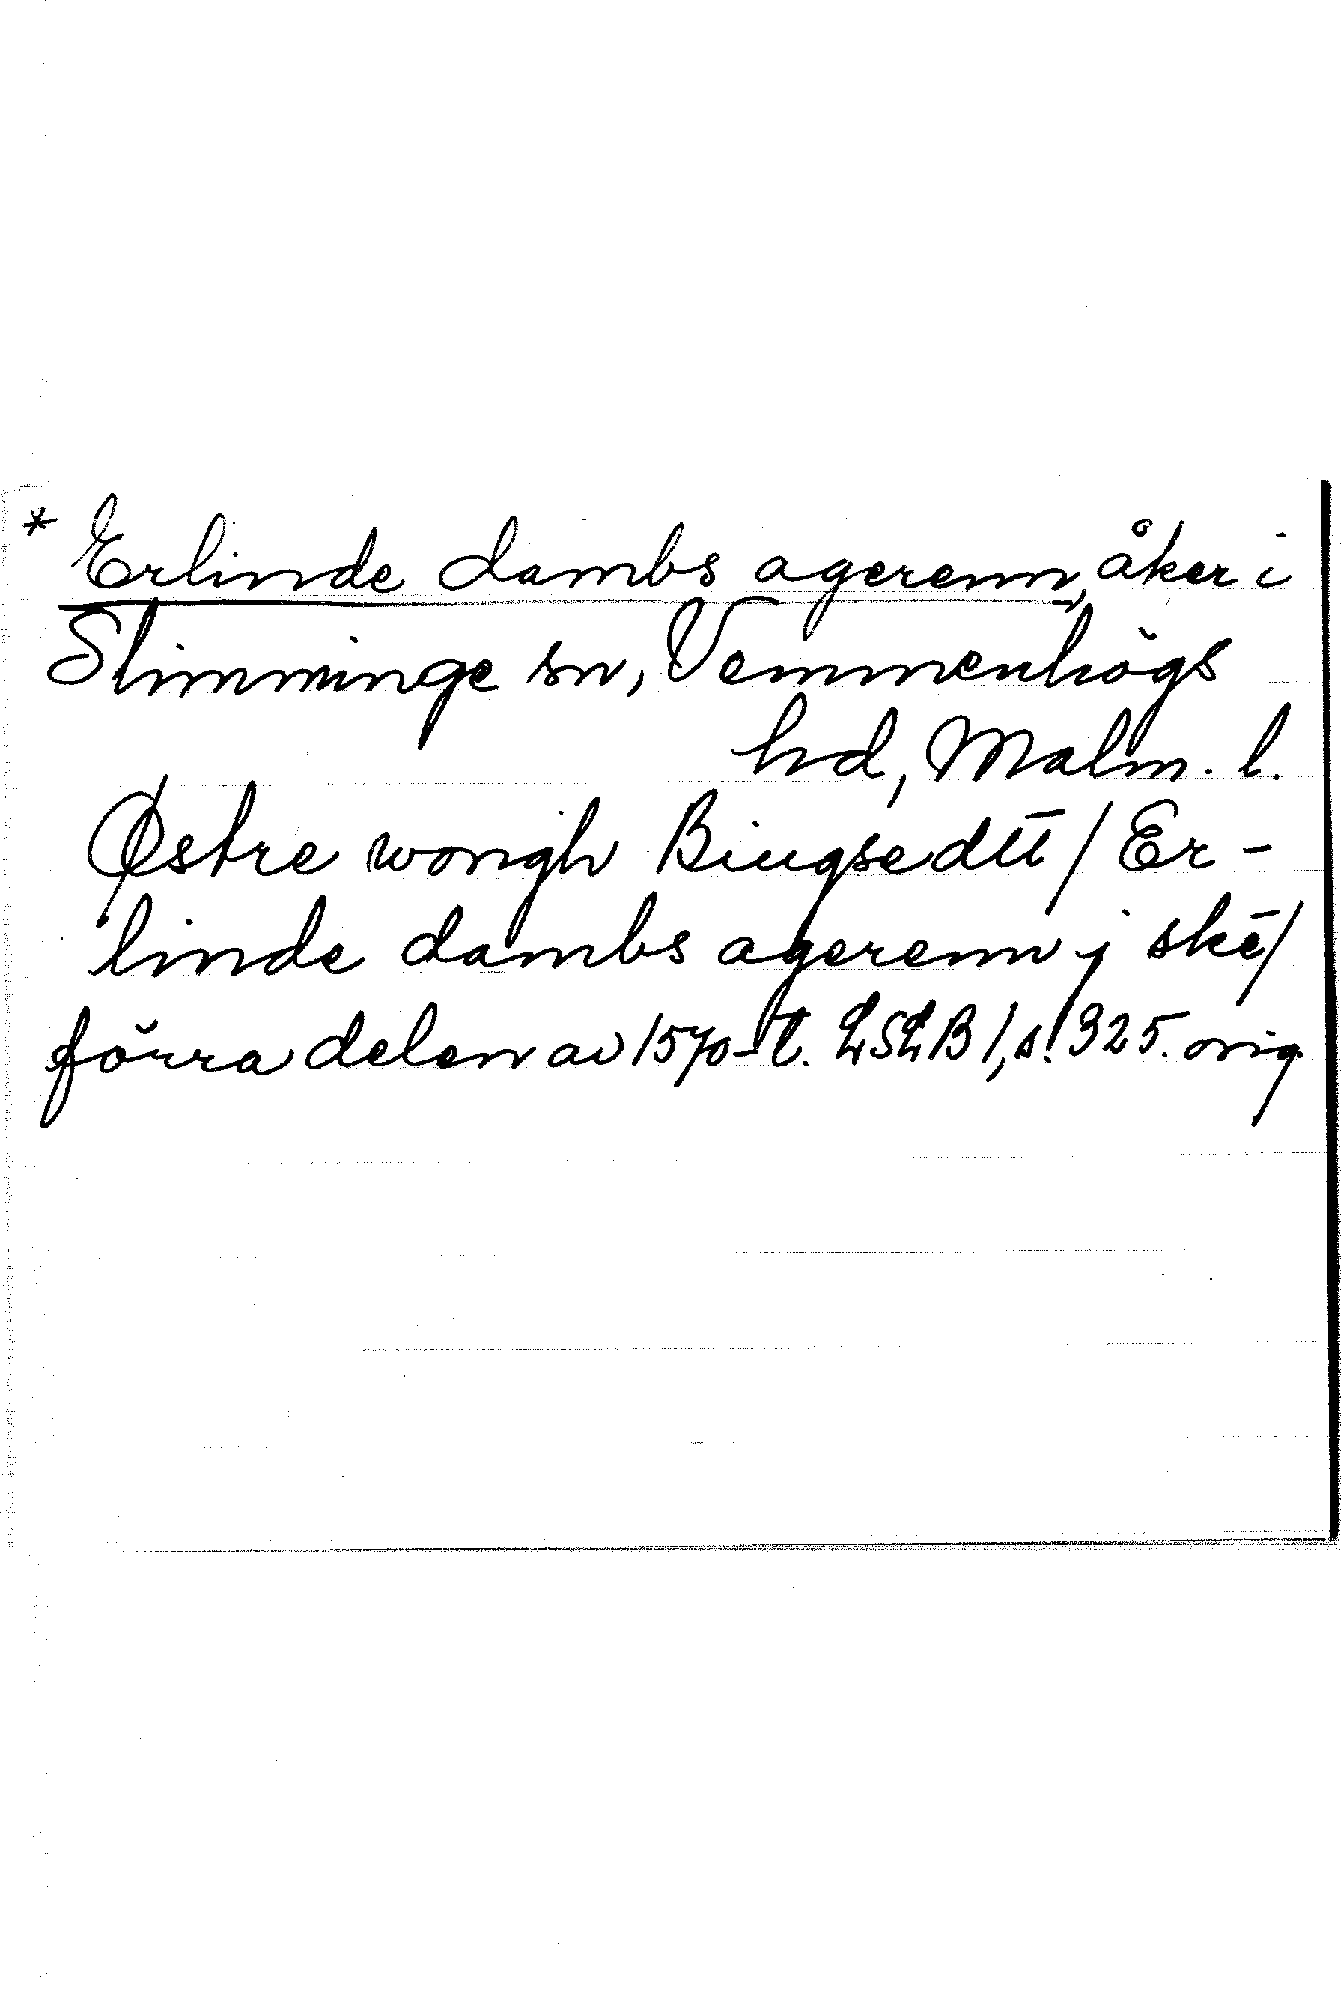 * Erlinde dambs agerenn, åker i
Slimminge sn, Vemmenhögs
hd, Malm. l.
Østre wongh Biugsedtt / Er-
linde dambs agerenn j skē/
förra delen av 1570-t. LSLB 1, s. 325. orig.